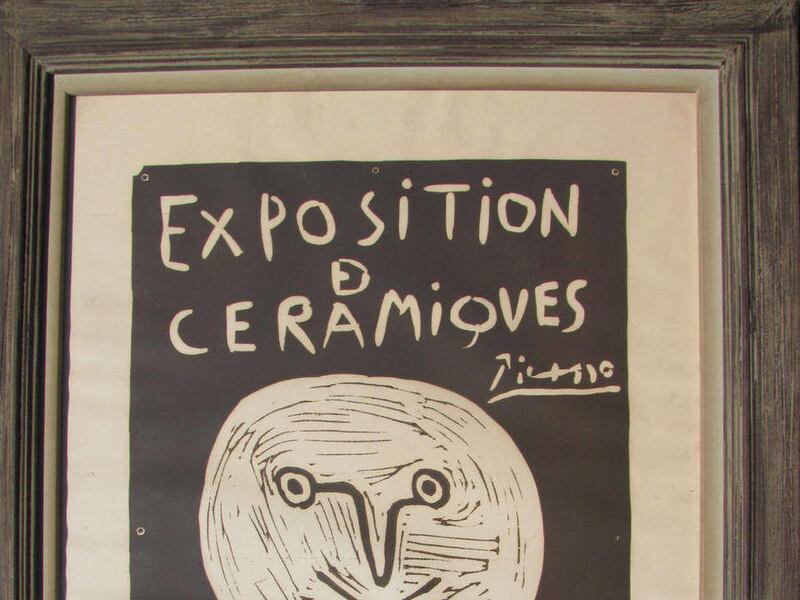 EXPOSiTiON
DE
CERAMiQVES
Picasso